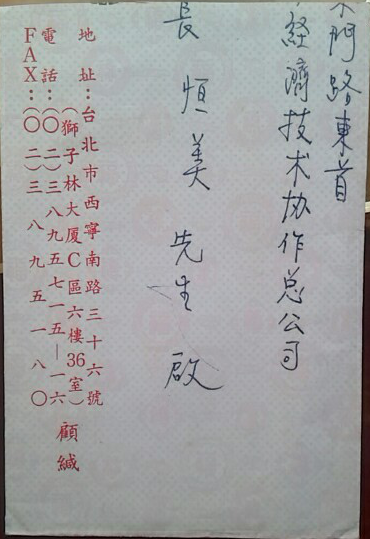 門路東首
經濟技术协作总公司
長恒美先生啟
地址:台北市西寧南路三十六號
(獅子林大厦C區六樓36室)
電話:(〇二)三八九五七一五—一六
FAX:(〇二)三八九五一八〇
顧緘